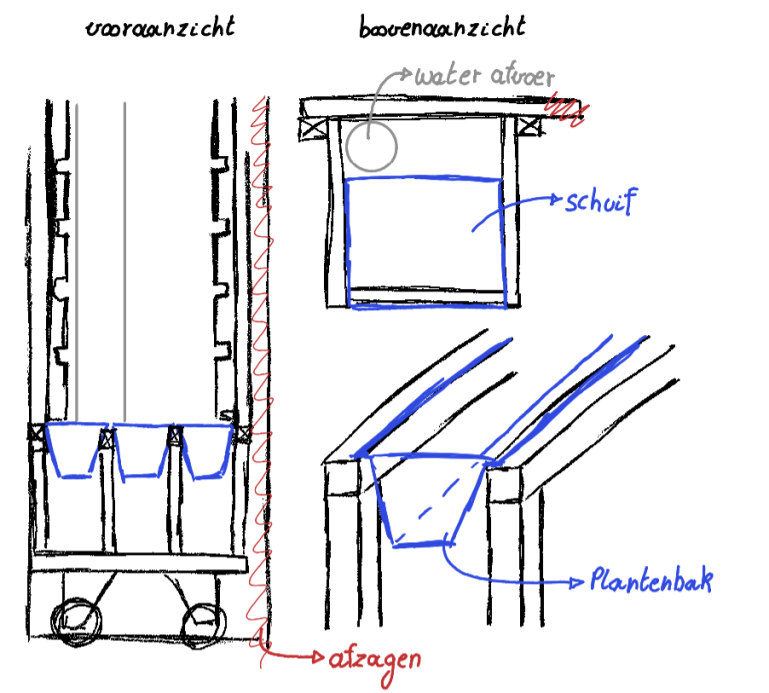 vooraanzicht
bovenaanzicht
water afvoer
schuif
Plantenbak
afzagen